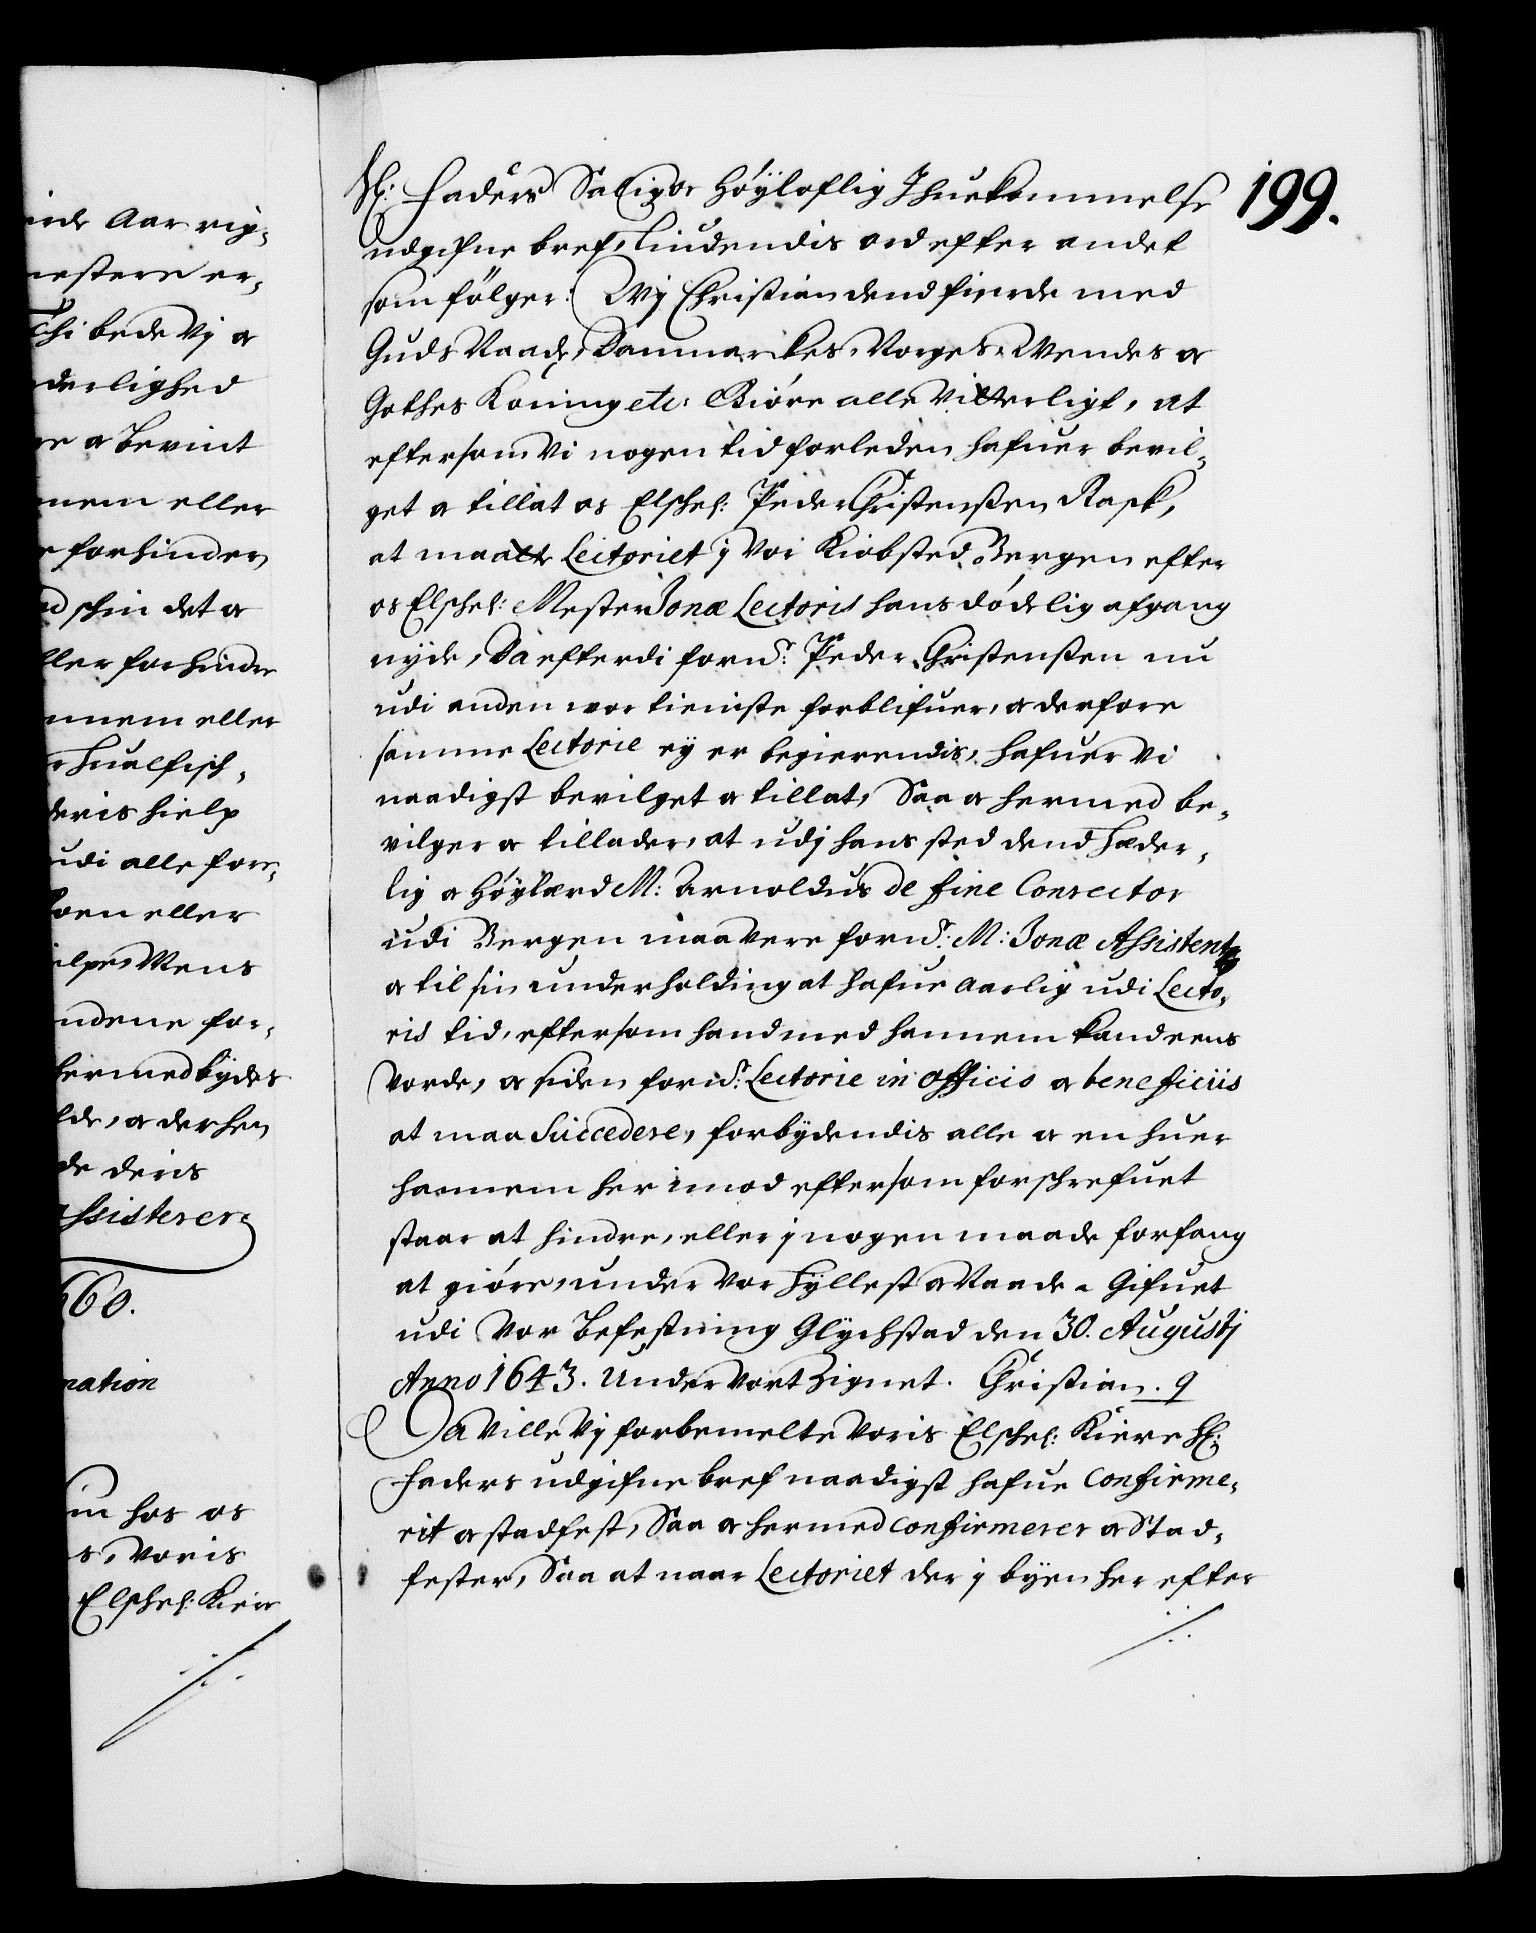 irde Aar rig=
mestere er=
Thi bede Vj a
derlighed
re a bevint
nem eller
e forhinder
d skin det a
ller forhindre
nnem eller
r hualfish=
deris hielp
udi alle for=
oen eller
ielpe, Mens
ndene for=
hermed bydes
lde, a der hen
de deris
ssisterer
660.
nation
in hos os
s, Voris
Elschel: Kier
199.
Hl: Faders Salig or Höyloflig Ihuekommelse
udgifne bref, liudendis ord efter andet
som fölger: Wj Christian dend fierde med
Guds Naade, Danmarckes, Norges, Wendes a
Gothes Koning etc: Giöre alle Vitterligt, at
eftersom Vi nogen tid forleden hafuer bevil=
get a tillat os Elschel: Peder Christensen Rask,
at maatte Lectoriet j Vor Kiobsted Bergen efter
os Elschel: Mester Jonæ Lectoris hans dödelig afgang
nyde, Da efterdi fornde: Peder Christensen nu
udi anden wor tieniste forblifuer, a derfore
samme Lectorie ey er begierendis, hafuer Vi
naadigst bevilget a tillat, Saa a hermed be=
vilger a tillader, at udj hans sted dend Hæder=
lig a Höylærd M: Arnoldus de fine Conrector
udi Bergen maa Vere fornde: M: Jonæ Assistent
a til sin underholding at hafue Aarlig udi Lecto=
ris tid, eftersom hand med hannem kand eens
Vorde, a siden fornde: Lectorie in officio a beneficiis
at maa Succedere, forbydendis alle a en huer
hannem her imod eftersom forschrefuet
staar at hindre, eller j nogen maade forfang
at giöre, under Vor hyllest a Naade. Gifuet
udi Vor Befestning Glychstad den 30. Augustj
Anno 1643. Under Vort Zignet. Christian.
Da Ville Vj forbemelte Voris Elschel: Kiere Hl:
Faders udgifne bref naadigst hafue confirme=
rit a stadfest, Saa a hermed confirmerer a Stad=
fester, Saa at naar Lectoriet der j byen her efter